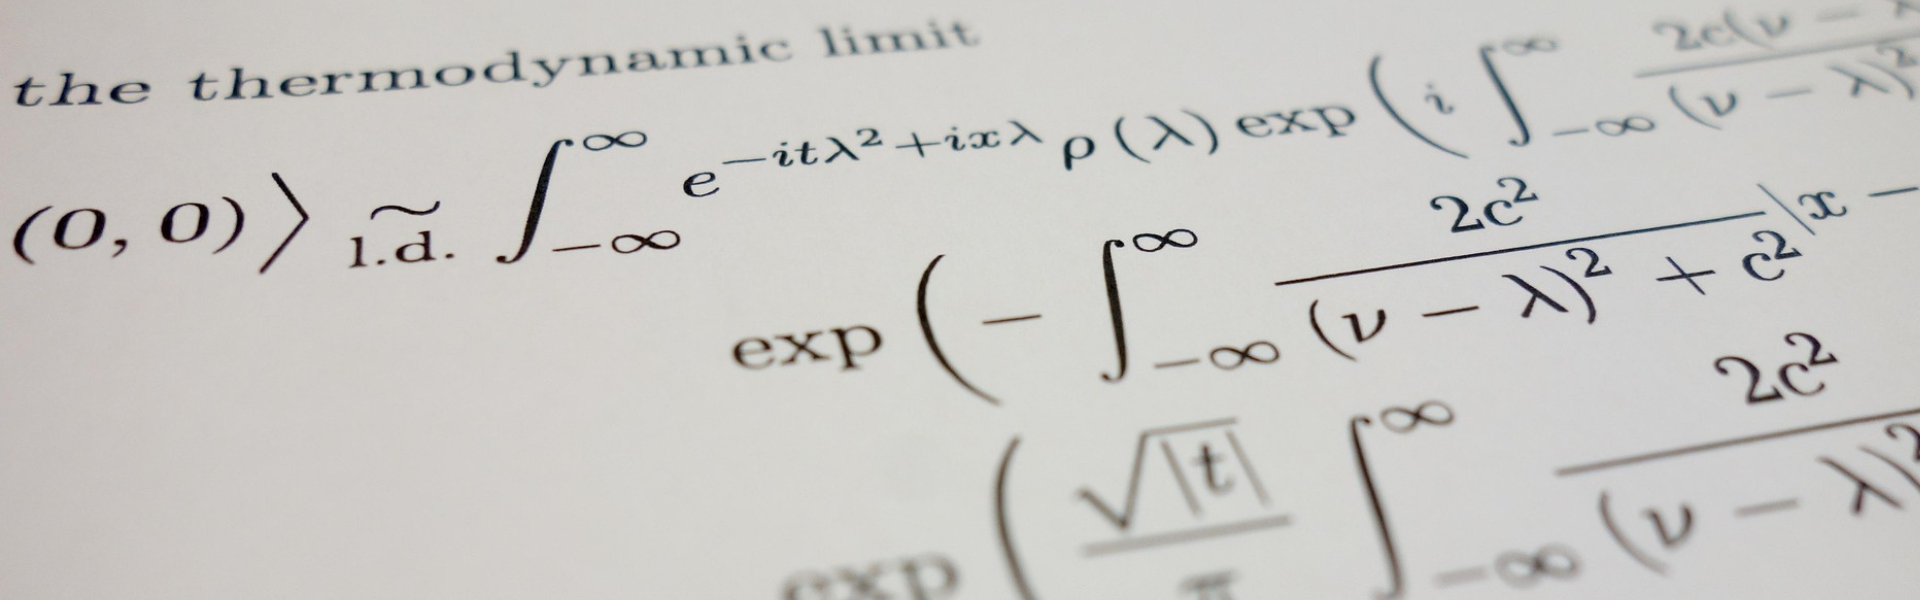 the thermodynamic limit
(0, 0)⟩ ~ l.d. ∫_{-∞}^{∞} e^{-itλ²+ixλ} ρ(λ) exp ( i ∫_{-∞}^{∞} 2c(ν − / (ν − λ)²
exp ( − ∫_{-∞}^{∞} 2c² / (ν − λ)² + c² |x −
exp ( √|t| / π ∫_{-∞}^{∞} 2c² / (ν − λ)²